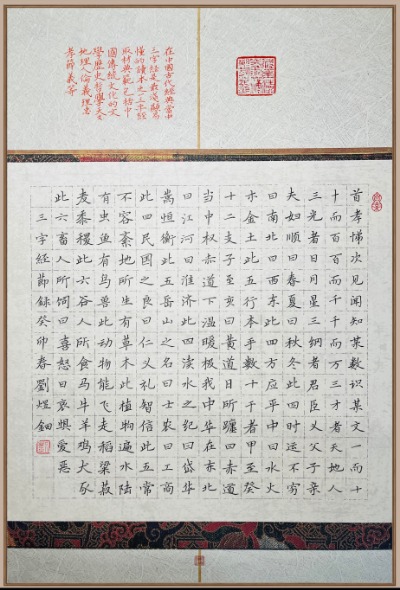 在中國古代經典當中
三字经是最浅显易
懂的讀本之一三字經
取材典範包括中
國傳統文化的文
學歷史哲學天文
地理人倫義理忠
孝節義等
首孝悌次见闻知某数识某文一而十
十而百百而千千而万三才者天地人
三光者日月星三纲者君臣义父子亲
夫妇顺曰春夏曰秋冬此四时运不穷
曰南北曰西东此四方应乎中曰水火
木金土此五行本乎数十干者甲至癸
十二支子至亥曰黄道日所躔曰赤道
当中权赤道下温暖极我中华在东北
曰江河曰淮济此四渎水之纪曰岱华
嵩恒衡此五岳山之名曰士农曰工商
此四民国之良曰仁义礼智信此五常
不容紊地所生有草木此植物遍水陆
有虫鱼有鸟兽此动物能飞走稻粱菽
麦黍稷此六谷人所食马牛羊鸡犬豕
此六畜人所饲曰喜怒曰哀惧爱恶
三字經節録癸卯春劉煜鈿